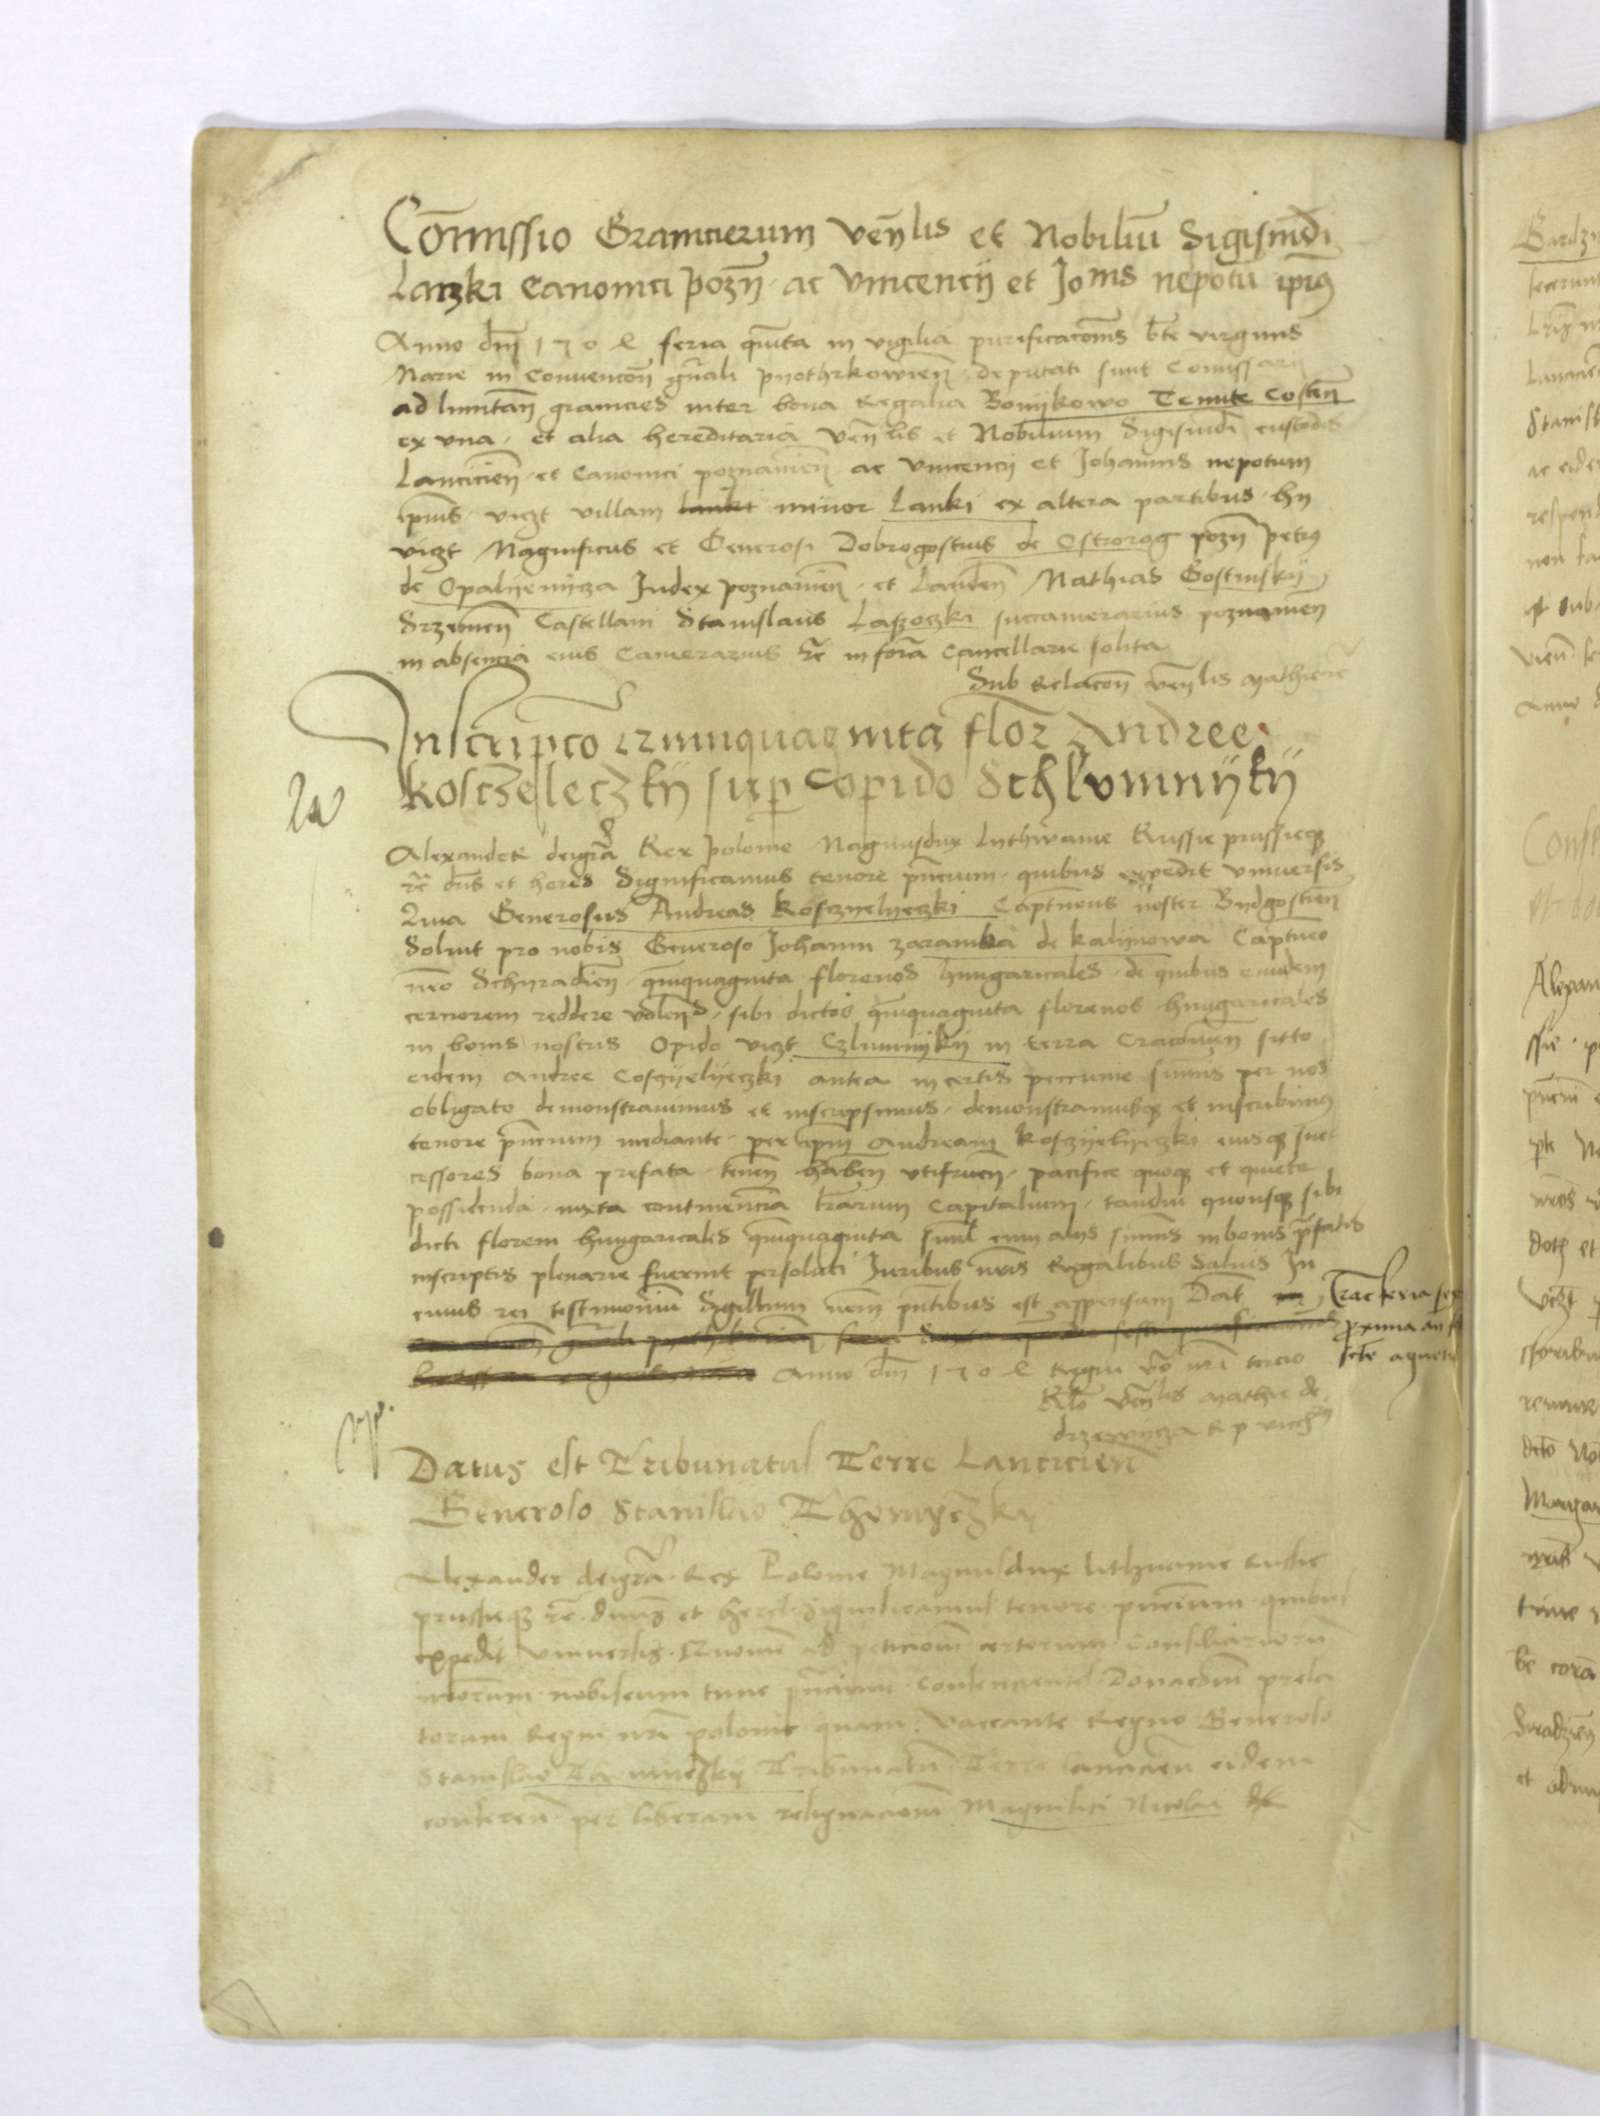 Com̄issio Granicierum Ven̄lis et Nobiliū Sigism̄di
Laczki Canonici pozn̄ · ac Vincencij et Joīns nepotū ip̄ius
Anno dn̄i 1504 feria quīta in vigilia purificacōnis bt̄e virginis
Marie in Convencōn gn̄ali pyothrkowien̄ · deputati sunt Com̄issarij
ad limitan̄ granicies inter bona Regalia Bonijkowo Tenute Costen̄
ex vna · et alia hereditaria Ven̄lis et Nobilium Sigismūdi custodis
Lancicien̄ · et Canonici poznanien̄ ac Vincencij et Johannis nepotum
ip̄ius · viczt villam lanki minor Lanki ex altera partibus · hij
viczt Magnificus et Generosi Dobrogostius de Ostrorog pozn̄ petrus
de Opalijenijcza Judex poznanien̄ · et Landen̄ Mathias Gostinskij
Srzemen̄ Castellani Stanislaus Laszoczki succamerarius poznanien̄
in absencia eius Camerarius rc̄ in forā Cancellarie solita
Sub Relacōn ven̄lis Mathie rc̄
Inscripcō quinquaginta flor̄ Andree
Kosczeleczkij sup̄ Copido Schlomnijkij
Alexander dei grā Rex Polonie Magnusdux Lythwanie Russie prussieqꝫ
rc̄ dn̄s et heres Significamus tenore pn̄cium · quibus expedit vniversis
Quia Generosus Andreas Kosczyelyeczki Capitneus noster Bydgostien̄
Soluit pro nobis Generoso Johanni Zaramba de Kalijnowa Captneo
nr̄o Schyradien̄ · quīquaginta florenos hungaricales · de quibus eundem
cerciorem reddere volen̄ · sibi dictos quīquaginta florenos hungaricales
in bonis nostris Opido viczt Czlumnijkij in terra Cracovien̄ sitto
eidem Andree Cosczyelijeczki antea in certis peccunie sum̄is per nos
obligato demonstravimus et inscripsimus · demonstramusqꝫ et inscribimus
tenore pn̄cium mediante · per ip̄um Andream Kosczijelijeczki eiusqꝫ suc
cessores bona prefata · tenen̄ haben̄ vtifruen̄ · pacifice quoqꝫ et quiete
possidenda · iuxta continencia l̄rarum Capitalium · tamdiu quousqꝫ sibi
dicti floreni hungaricales quīquaginta simul cum alijs sum̄is in bonis pr̄fatis
inscriptis plenarie fuerint persoluti Juribus nr̄is Regalibus Salvis In
cuius rei testimoniū Sigillum nr̄m pn̄tibus est appensum Dat̄ Crac feria sex
proxima an f
sc̄te agnetis
Anno dn̄i 1504 Regni vō nr̄i tercio
Rlō ven̄lis Mathie de
drzewijcza R p vicecan̄
Datus est Tribunatus Terre Lancicien̄
Generoso Stanislao
Alexander dei grā · Rex Polonie Magnusdux lithuanie Russie
prussieqꝫ rc̄ · dn̄us et heres · Significamus tenore · pn̄cium · quibus
expedit vniversis · Quomō ad peticiōnē certorum · Consiliariorū
nr̄orum · nobiscum tunc pn̄cium · Consencientes · Donacōni prela
torum Regni nr̄i polonie quam · Vaccante Regno Generoso
Stanislao Tribunatū Terre Lancicien̄ eidem
conferen̄ · per liberam resignacionē Magnifici Nicolai de